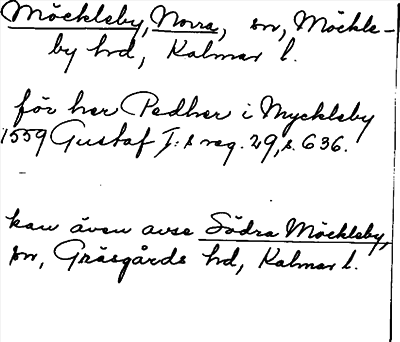 Möckleby, Norra, sn, Möckle-
by hd, Kalmar l.
för her Pedher i Myckleby
1559 Gustaf I:s reg. 29, s. 636.
kan även avse Södra Möckleby,
sn, Gräsgårds hd, Kalmar l.